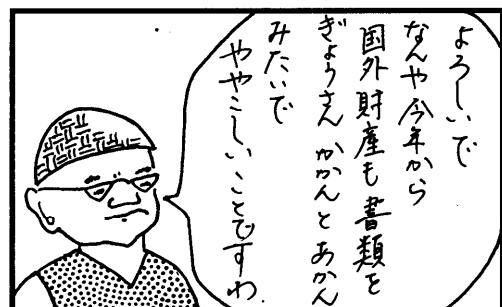 よろしいで
なんや今年から
国外財産も書類を
ぎょうさんかかんとあかん
みたいで
ややこしいことですわ.